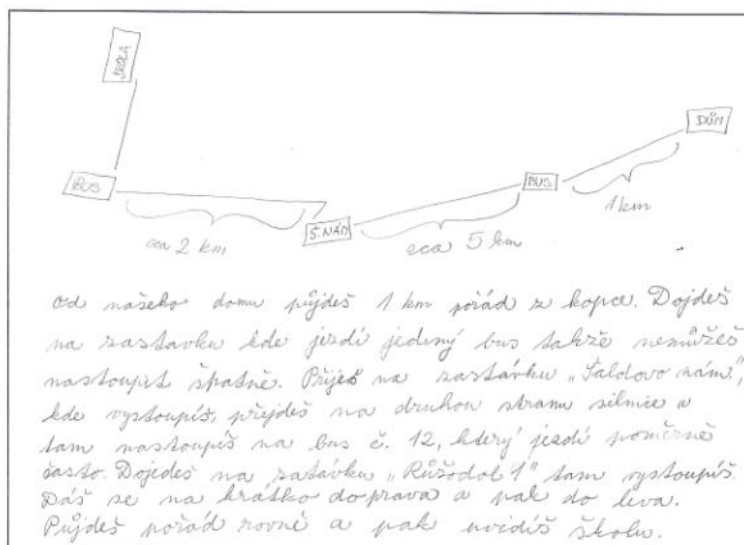 ŠKOLA
DŮM
BUS
BUS
1 km
Š. NÁM
cca 2 km
cca 5 km
od našeho domu půjdeš 1 km pořád z kopce. Dojdeš
na zastavku kde jezdí jediný bus takže nemůžeš
nastoupit špatně. Přiješ na zastávku „Šaldovo nám.",
kde vystoupíš, přejdeš na druhou stranu silnice a
tam nastoupíš na bus č. 12, který jezdí poměrně
často. Dojedeš na zatávku „Růžodol 1" tam vystoupíš.
Dáš se na krátko doprava a pak do leva.
Půjdeš pořád rovně a pak uvidíš školu.